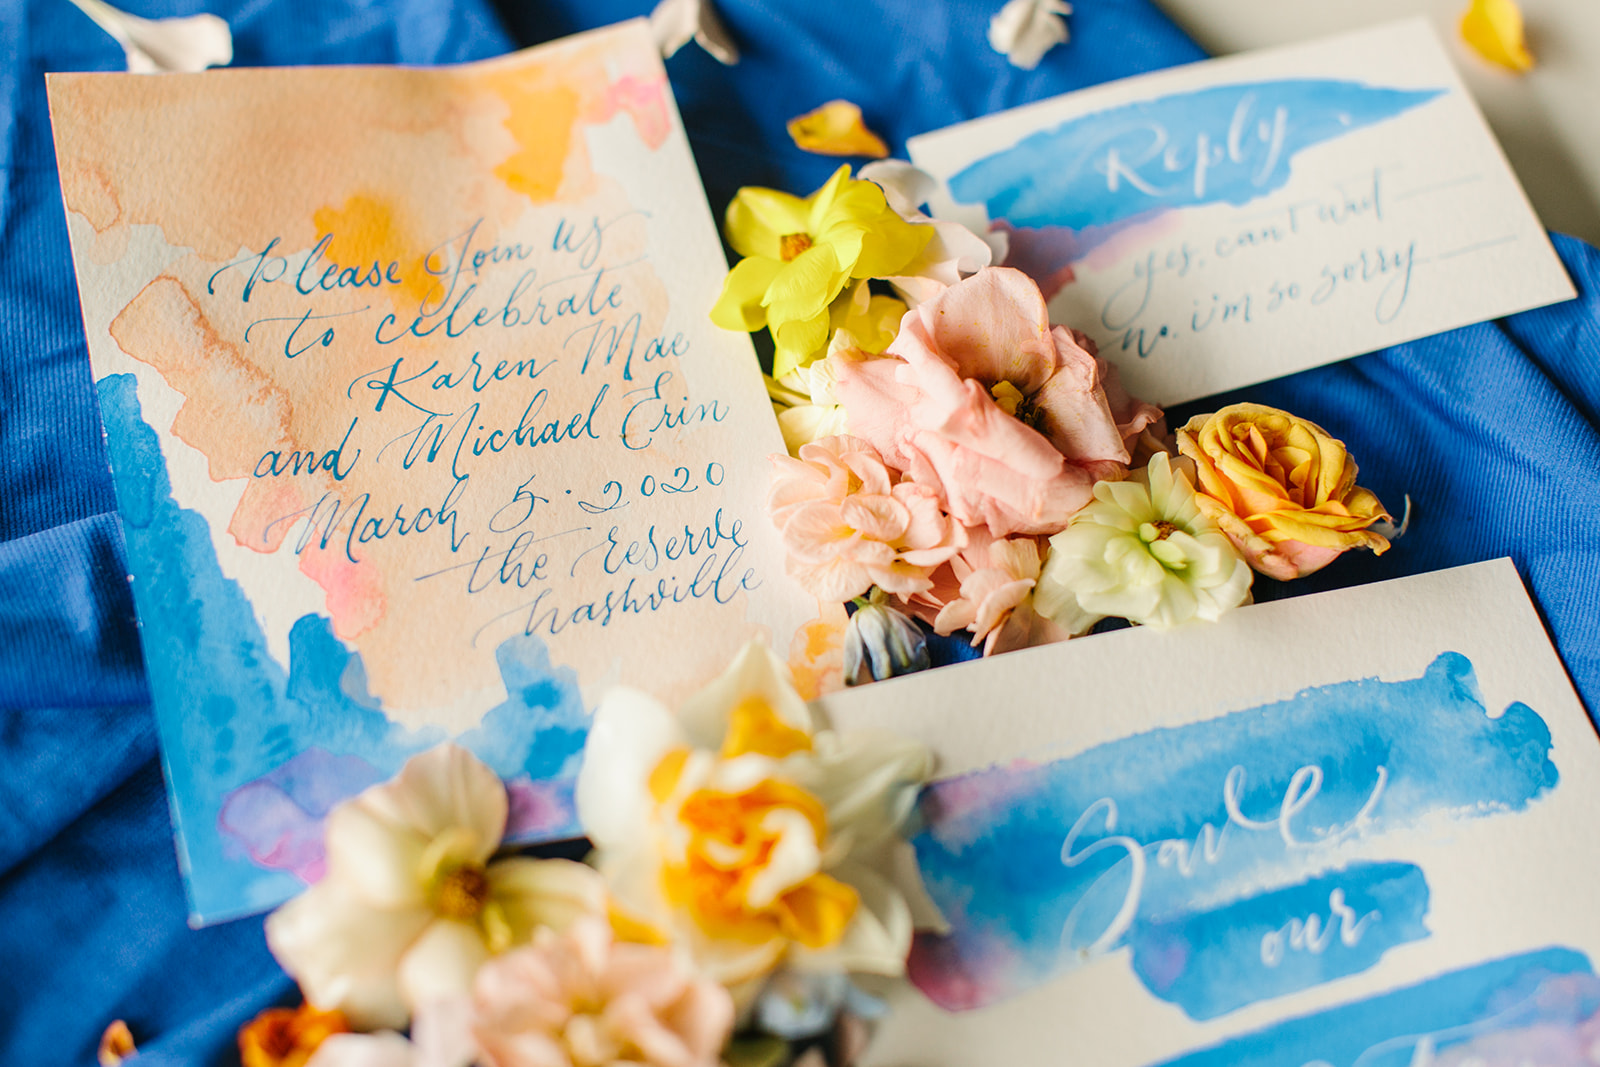 Please Join us
to celebrate
Karen Mae
and Michael Erin
March 5. 2020
the reserve
nashville
Reply
yes, can't wait
no, i'm so sorry
Save
our